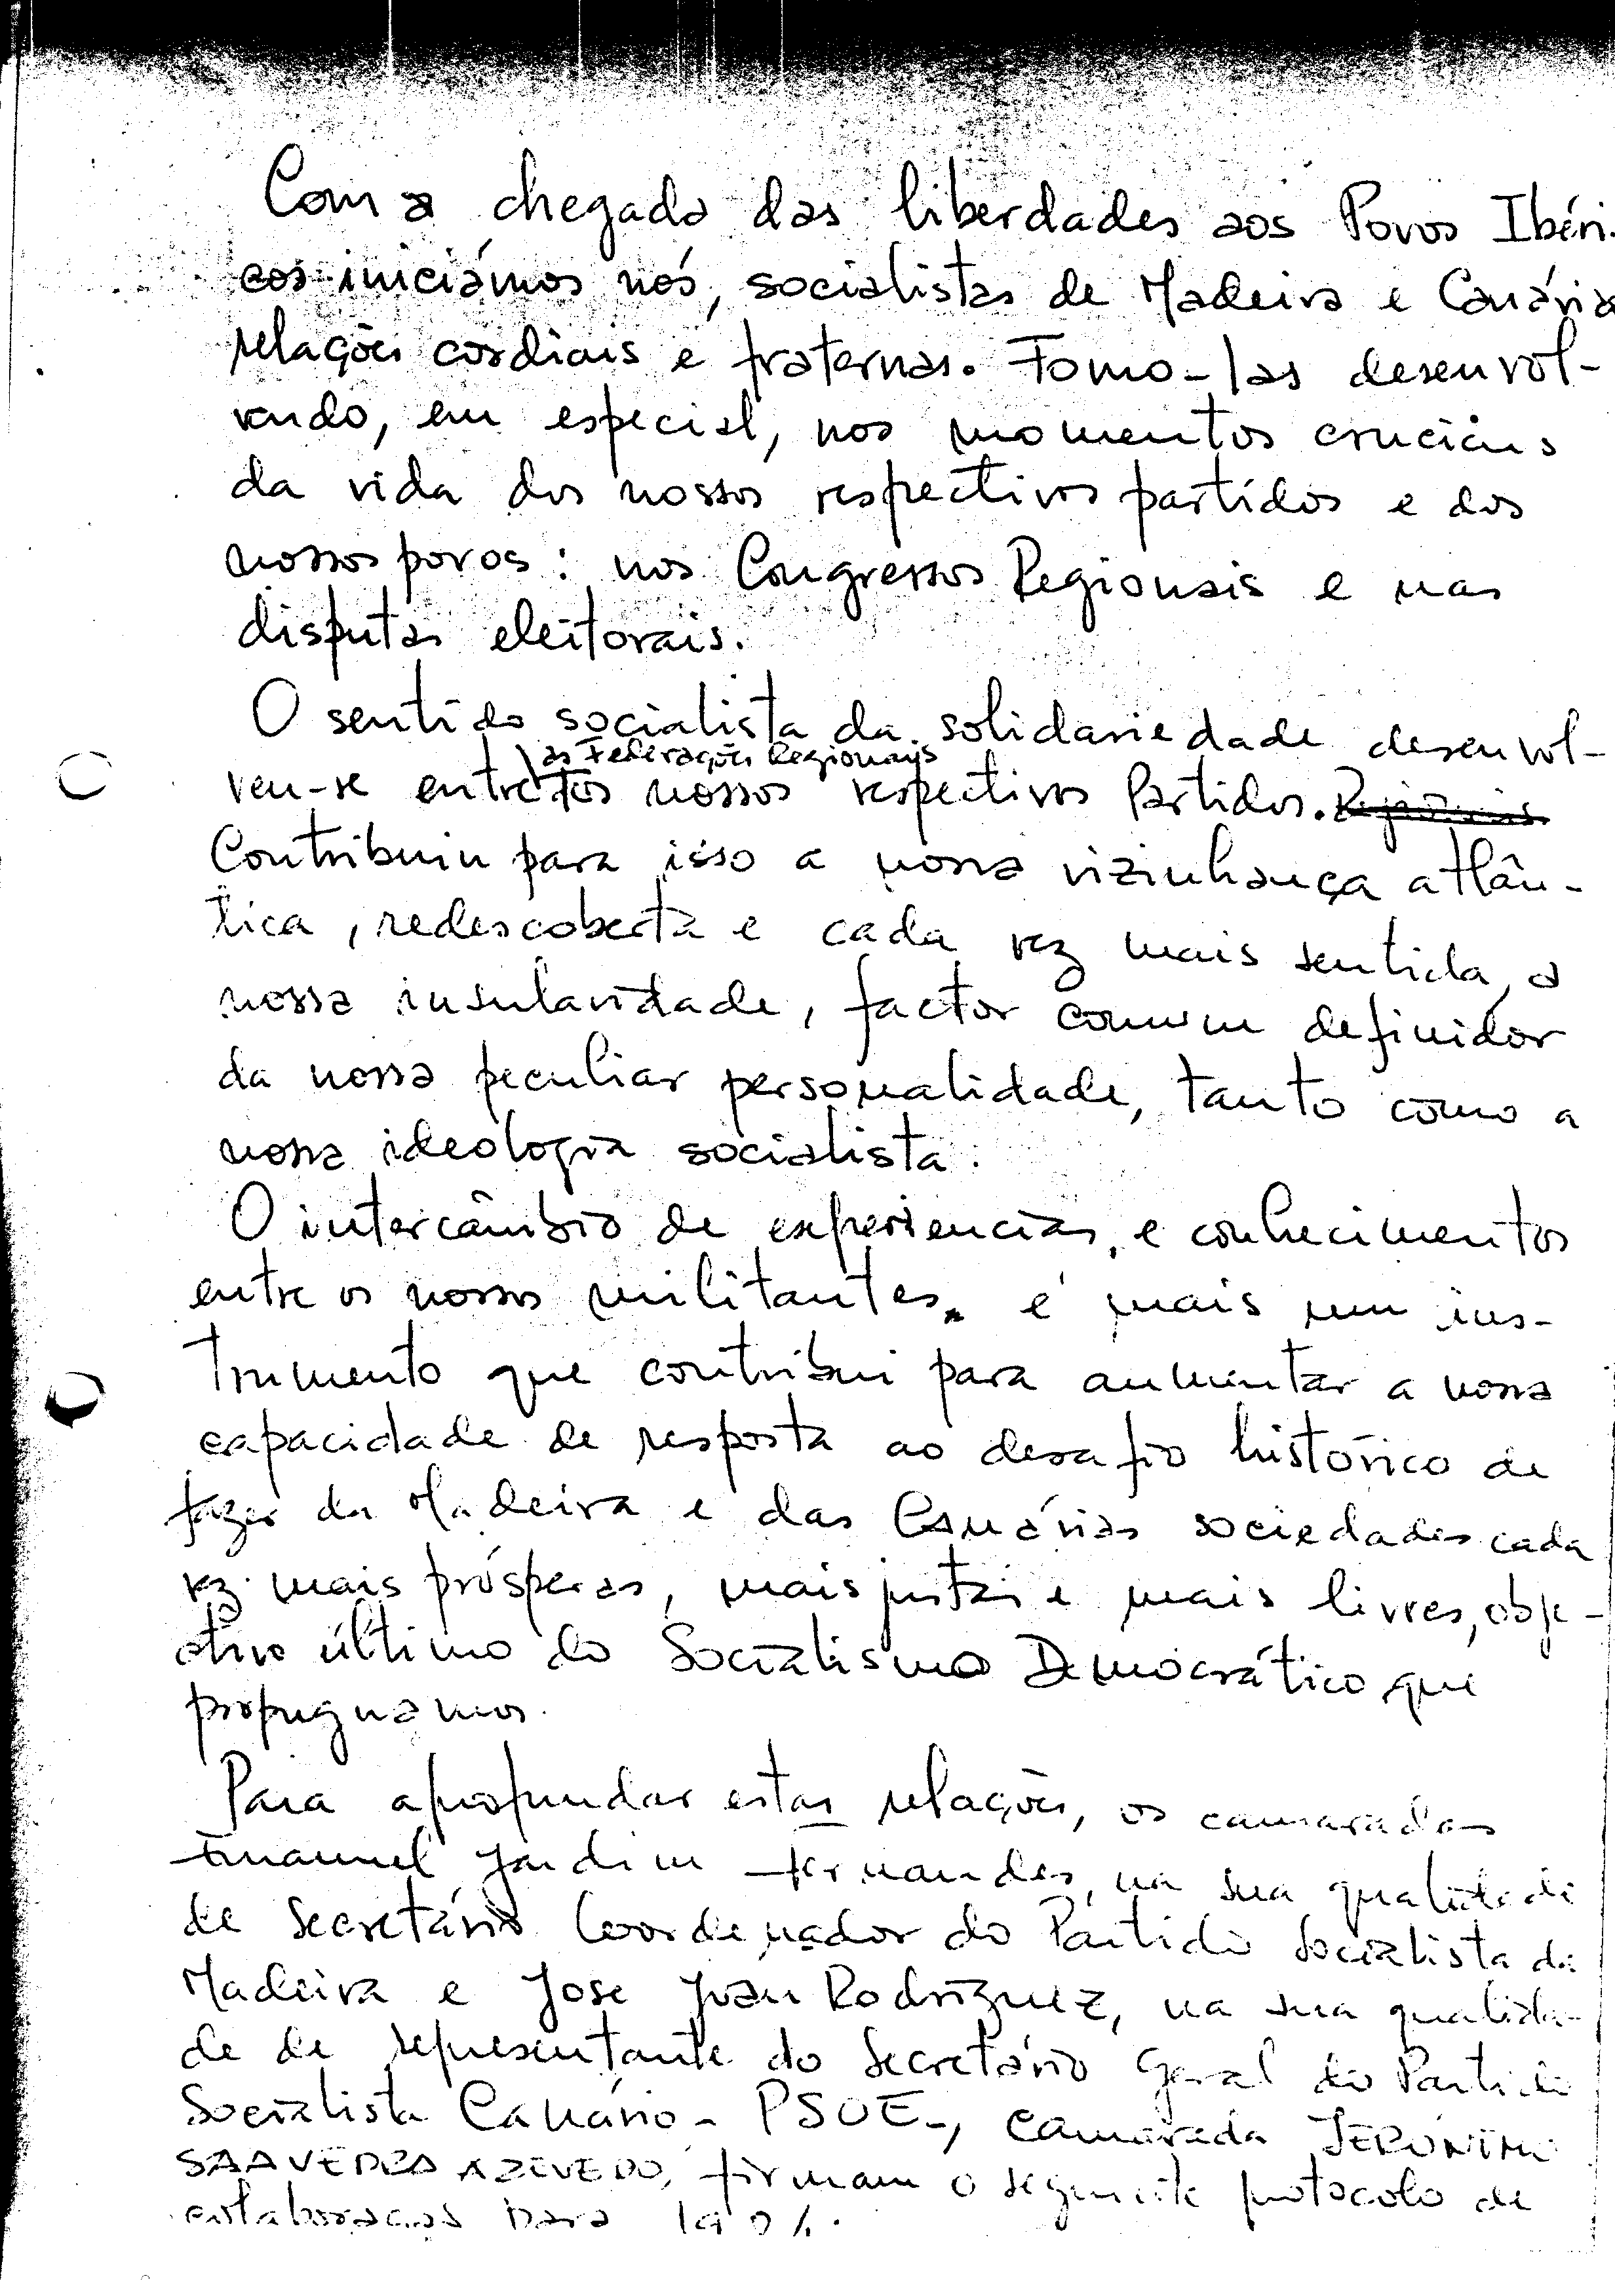 Com a chegada das liberdades aos Povos Ibéri-
cos iniciámos nós, socialistas de Madeira e Canárias
relações cordiais e fraternas. Fomo-las desenvol-
vendo, em especial, nos momentos cruciais
da vida dos nossos respectivos partidos e dos
nossos povos: nos Congressos Regionais e nas
disputas eleitorais.
O sentido socialista da solidariedade desenvol-
as Federações Regionais
veu-se entre dos nossos respectivos Partidos. Regionais.
Contribuiu para isso a nossa vizinhança atlân-
tica, redescoberta e cada vez mais sentida, a
nossa insularidade, factor comum definidor
da nossa peculiar personalidade, tanto como a
nossa ideologia socialista.
O intercâmbio de experiencias, e conhecimentos
entre os nossos militantes, é mais um ins-
trumento que contribui para aumentar a nossa
capacidade de resposta ao desafio histórico de
fazer da Madeira e das Canárias sociedades cada
vez mais prósperas, mais justas e mais livres, obje-
ctivo último do Socialismo Democrático que
propugnamos.
Para aprofundar estas relações, os camaradas
Emanuel Jardim Fernandes, na sua qualidade
de Secretário Coordenador do Partido Socialista da
Madeira e Jose Juan Rodriguez, na sua qualida-
de de representante do Secretário Geral do Partido
Socialista Canário - PSOE -, camarada JERONIMO
SAAVEDRA AZEVEDO, firmam o seguinte protocolo de
colaboração para